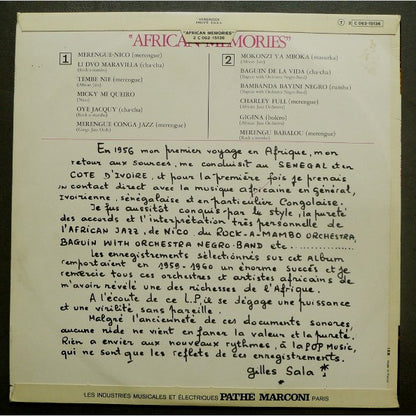 "AFRICAN MEMORIES"
2 C 062-15136
T 2 C 062-15136
"AFRICAN MEMORIES"
1
MERENGUE-NICO (merengue)
LI DVO MARAVILLA (cha-cha)
(Rock-a-mambo)
TEMBE NIE (merengue)
(African Jazz)
MICKY ME QUIERO
(Nico)
OYE JACQUY (cha-cha)
(Rock-a-mambo)
MERENGUE CONGA JAZZ (merengue)
(Conga Jazz Orch)
2
MOKONZI YA MBOKA (mazurka)
(African Jazz)
BAGUIN DE LA VIDA (cha-cha)
(Baguin with Orchestra Negro-Band)
BAMBANDA BAVINI NEGRO (rumba)
(Baguin with Orchestra Negro-Band)
CHARLEY FULL (merengue)
(African Jazz Orchestra)
GIGINA (boléro)
(African Jazz Orchestra)
MERENGE BABALOU (merengue)
(Rock-a-mambo)
En 1956 mon premier voyage en Afrique, mon
retour aux sources, me conduisit au SENEGAL et en
COTE D'IVOIRE, et pour la première fois je prenais
contact direct avec la musique africaine en général,
Ivoirienne, sénégalaise et en particulier Congolaise.
Je fus aussitôt conquis par le style, la pureté
des accords et l'interprétation très personnelle de
l'AFRICAN JAZZ, de NICO, du ROCK-A-MAMBO ORCHESTRA,
BAGUIN WITH ORCHESTRA NEGRO-BAND etc ........
Les enregistrements sélectionnés sur cet album
remportaient en 1959-1960 un énorme succès et je
remercie tous ces orchestres et artistes africains de
m'avoir révélé une des richesses de l'Afrique.
A l'écoute de ce L.P. il se dégage une puissance
et une virilité sans pareille.
Malgré l'ancienneté de ces documents sonores,
aucune ride ne vient en faner la valeur et la pureté.
Rien a envier aux nouveaux rythmes, à la POP MUSIC,
qui ne sont que les reflets de ces enregistrements.
gilles Sala
LES INDUSTRIES MUSICALES ET ÉLECTRIQUES PATHE MARCONI PARIS